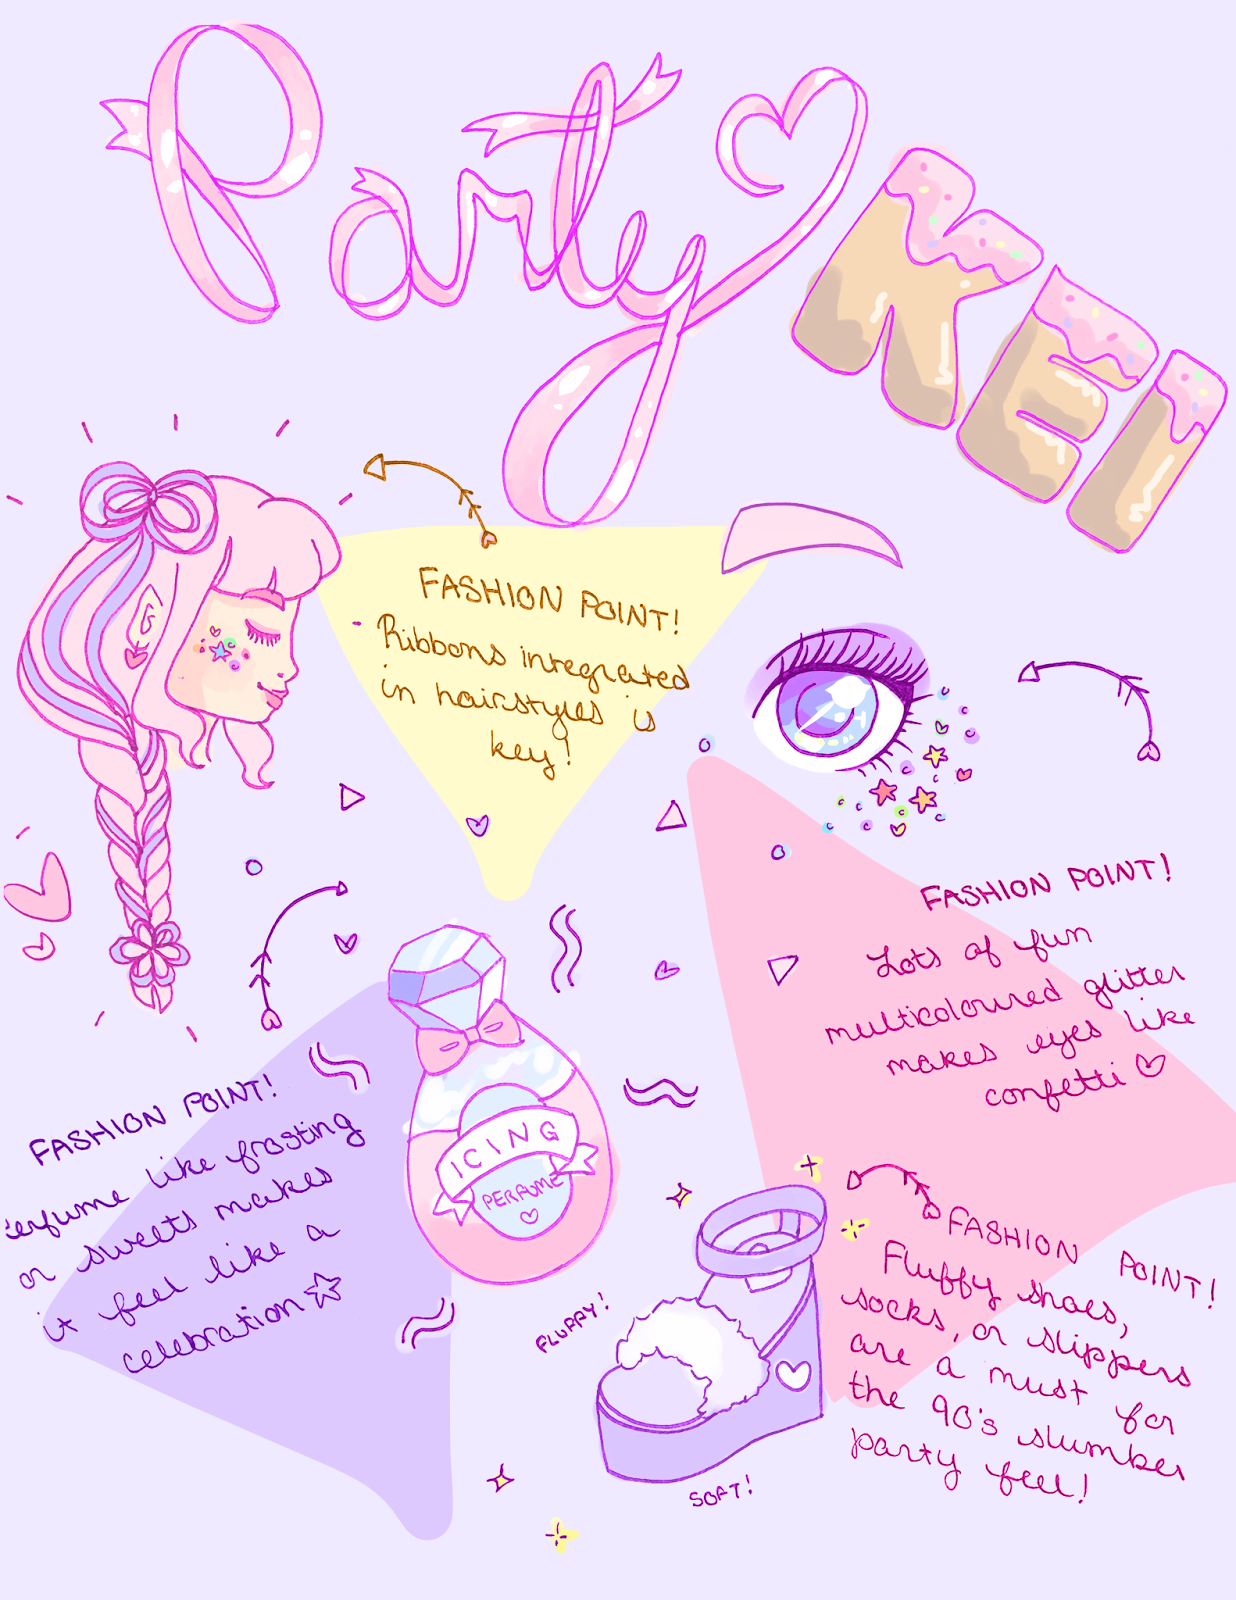 Party KEI
FASHION POINT!
- Ribbons integrated
in hairstyles is
key!
FASHION POINT!
Lots of fun
multicoloured glitter
makes eyes like
confetti
FASHION POINT!
erfume like frosting
or sweets makes
it feel like a
celebration
ICING
PERFUME
FASHION POINT!
Fluffy shoes,
socks, or slippers
are a must for
the 90's slumber
party feel!
FLUFFY!
SOFT!